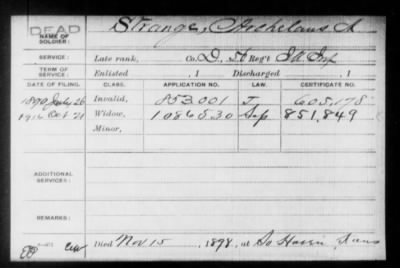 DEAD
NAME OF SOLDIER: Strange, A
SERVICE: Late rank, Co. D, 56 Reg't Ia. Inf
TERM OF SERVICE: Enlisted , 1 Discharged , 1
DATE OF FILING. CLASS. APPLICATION NO. LAW. CERTIFICATE NO.
1890 July 26 Invalid, 853.001 J 605,178
1916 Oct 21 Widow, 1086530 851,849
Minor,
ADDITIONAL SERVICES:
REMARKS:
Died Nov. 15, 1898, at So Haven, Kans